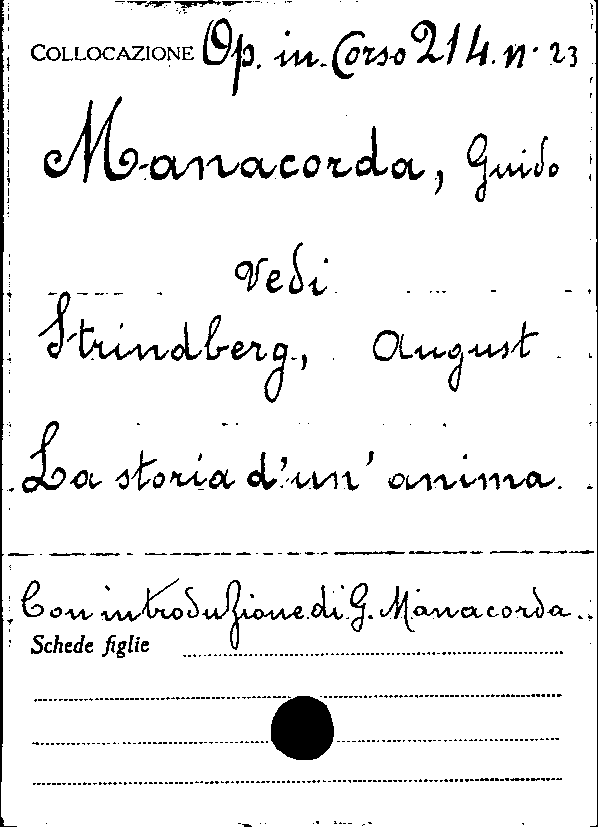 COLLOCAZIONE Op. in Corso 214. n. 23
Manacorda, Guido
Vedi
Strindberg, August
La storia d'un' anima.
Con introduzione di G. Manacorda.
Schede figlie